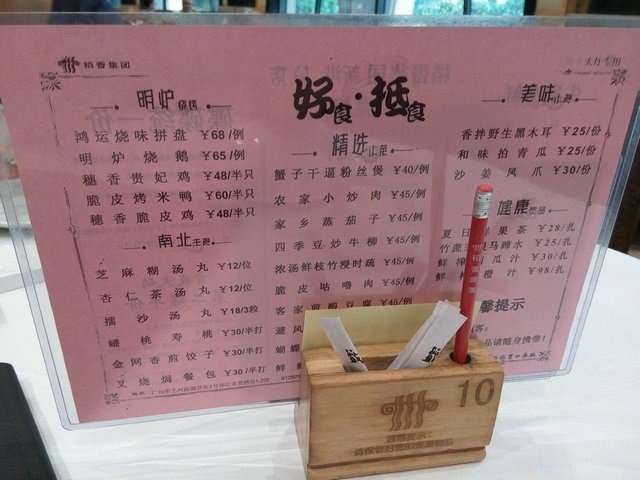 稻香集团
大厅专用
好食·抵食
明炉烧烤
鸿运烧味拼盘 ¥68/例
明炉烧鹅 ¥65/例
穗香贵妃鸡 ¥48/半只
脆皮烤米鸭 ¥60/半只
穗香脆皮鸡 ¥48/半只
南北
芝麻糊汤丸 ¥12/位
杏仁茶汤丸 ¥12/位
擂沙汤丸 ¥18/3粒
蟠桃寿桃 ¥30/半打
金网香煎饺子 ¥30/半打
叉烧焗餐包 ¥30/半打
精选小菜
蟹子干逼粉丝煲 ¥40/例
农家小炒肉 ¥45/例
家乡蒸茄子 ¥45/例
四季豆炒牛柳 ¥45/例
浓汤鲜枝竹浸时蔬 ¥45/例
脆皮咕噜肉 ¥45/例
客家煎酿豆腐
避风
蝴蝶
鲜
美味
香拌野生黑木耳 ¥25/份
和味拍青瓜 ¥25/份
沙姜凤爪 ¥30/份
健康
夏日 果茶 ¥28/扎
竹蔗 马蹄水 ¥25/扎
鲜 瓜汁 ¥30/扎
鲜 橙汁 ¥98/扎
馨提示
品请随身携带!
10
温馨提示:
请保管好您的贵重物品